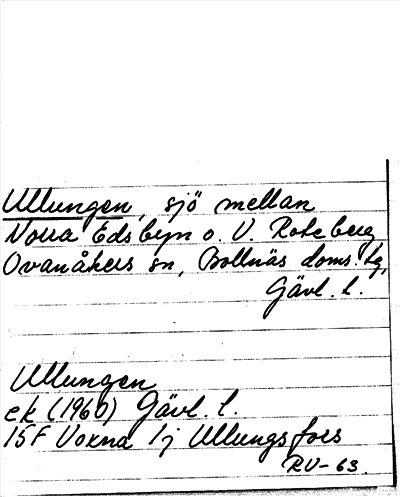 Ullungen, sjö mellan
Norra Edsbyn o. V. Roteberg
Ovanåkers sn, Bollnäs doms. tg,
Gävl. l.
Ullungen
ek (1960) Gävl. l.
15F Voxna 1j Ullungsfors
RV-63.